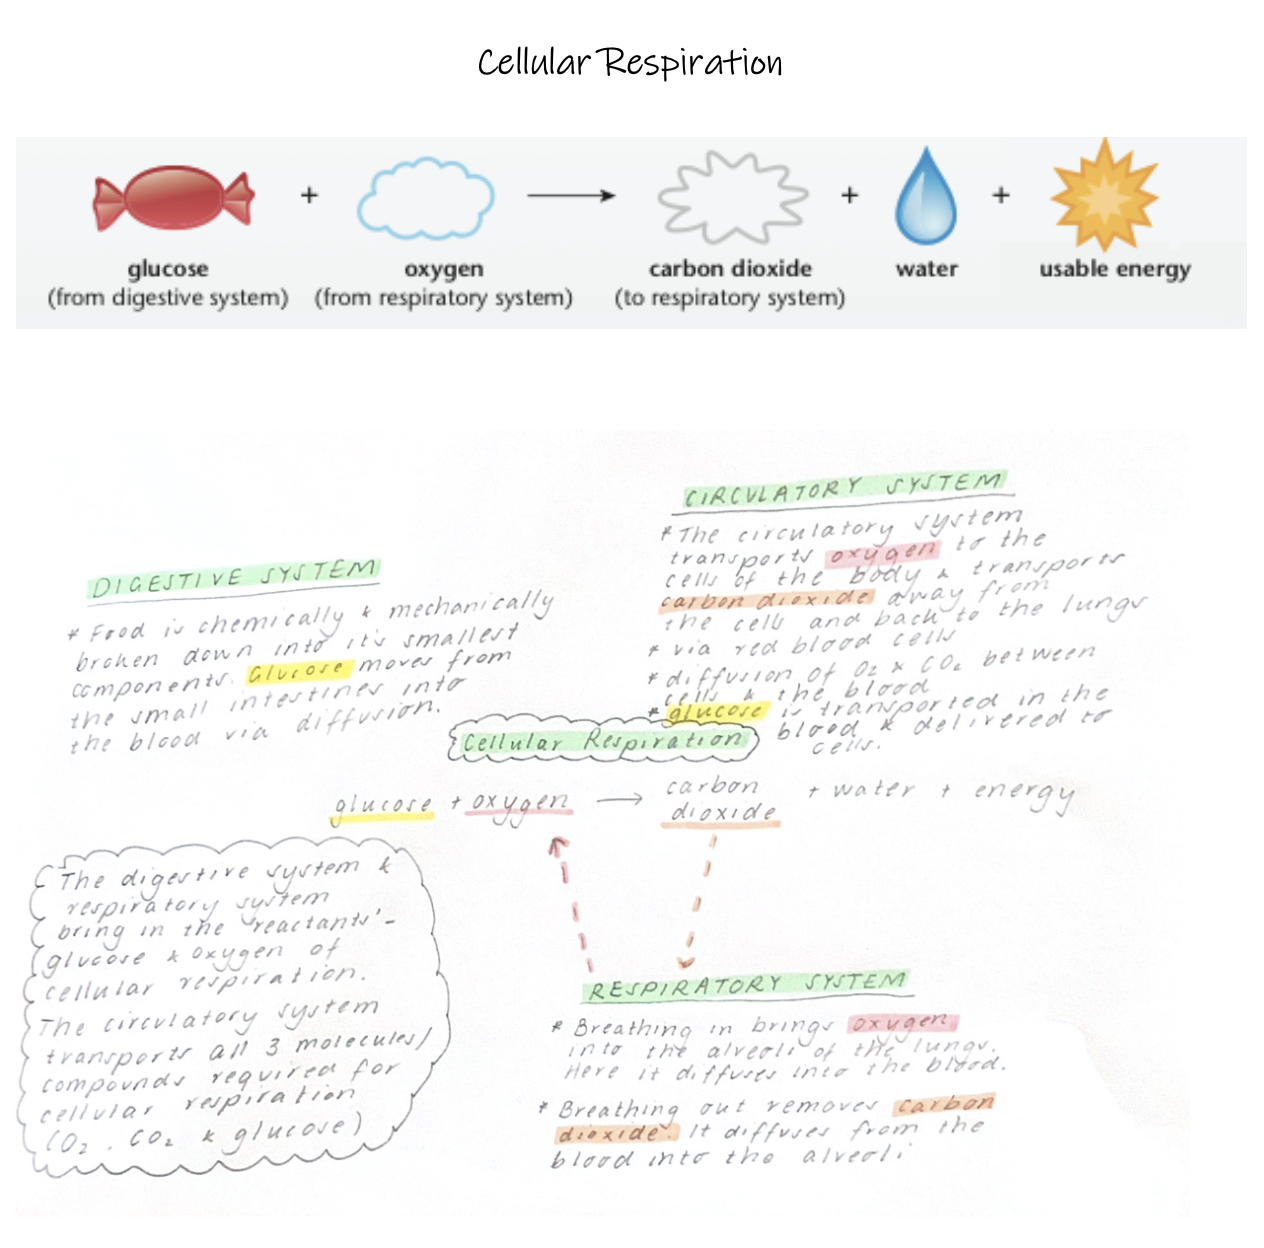 Cellular Respiration
+ + +
glucose oxygen carbon dioxide water usable energy
(from digestive system) (from respiratory system) (to respiratory system)
CIRCULATORY SYSTEM
* The circulatory system
transports oxygen to the
cells of the body & transports
carbon dioxide away from
the cells and back to the lungs
* via red blood cells
* diffusion of O₂ & CO₂ between
cells & the blood
* glucose is transported in the
blood & delivered to
cells.
DIGESTIVE SYSTEM
* Food is chemically & mechanically
broken down into it's smallest
components. Glucose moves from
the small intestines into
the blood via diffusion.
Cellular Respiration
glucose + oxygen → carbon dioxide + water + energy
The digestive system &
respiratory system
bring in the 'reactants' -
glucose & oxygen of
cellular respiration.
The circulatory system
transports all 3 molecules/
compounds required for
cellular respiration
(O₂, CO₂ & glucose)
RESPIRATORY SYSTEM
* Breathing in brings oxygen
into the alveoli of the lungs.
Here it diffuses into the blood.
* Breathing out removes carbon
dioxide. It diffuses from the
blood into the alveoli